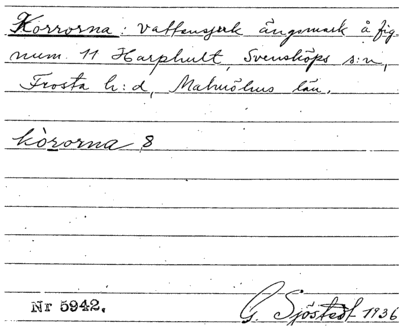 Korrorna: vattensjuk ängsmark å fig.
num. 11 Harphult, Svensköps s:n,
Frosta h:d, Malmöhus län.
kòrorna 8
Nr 5942. G. Sjöstedt 1936